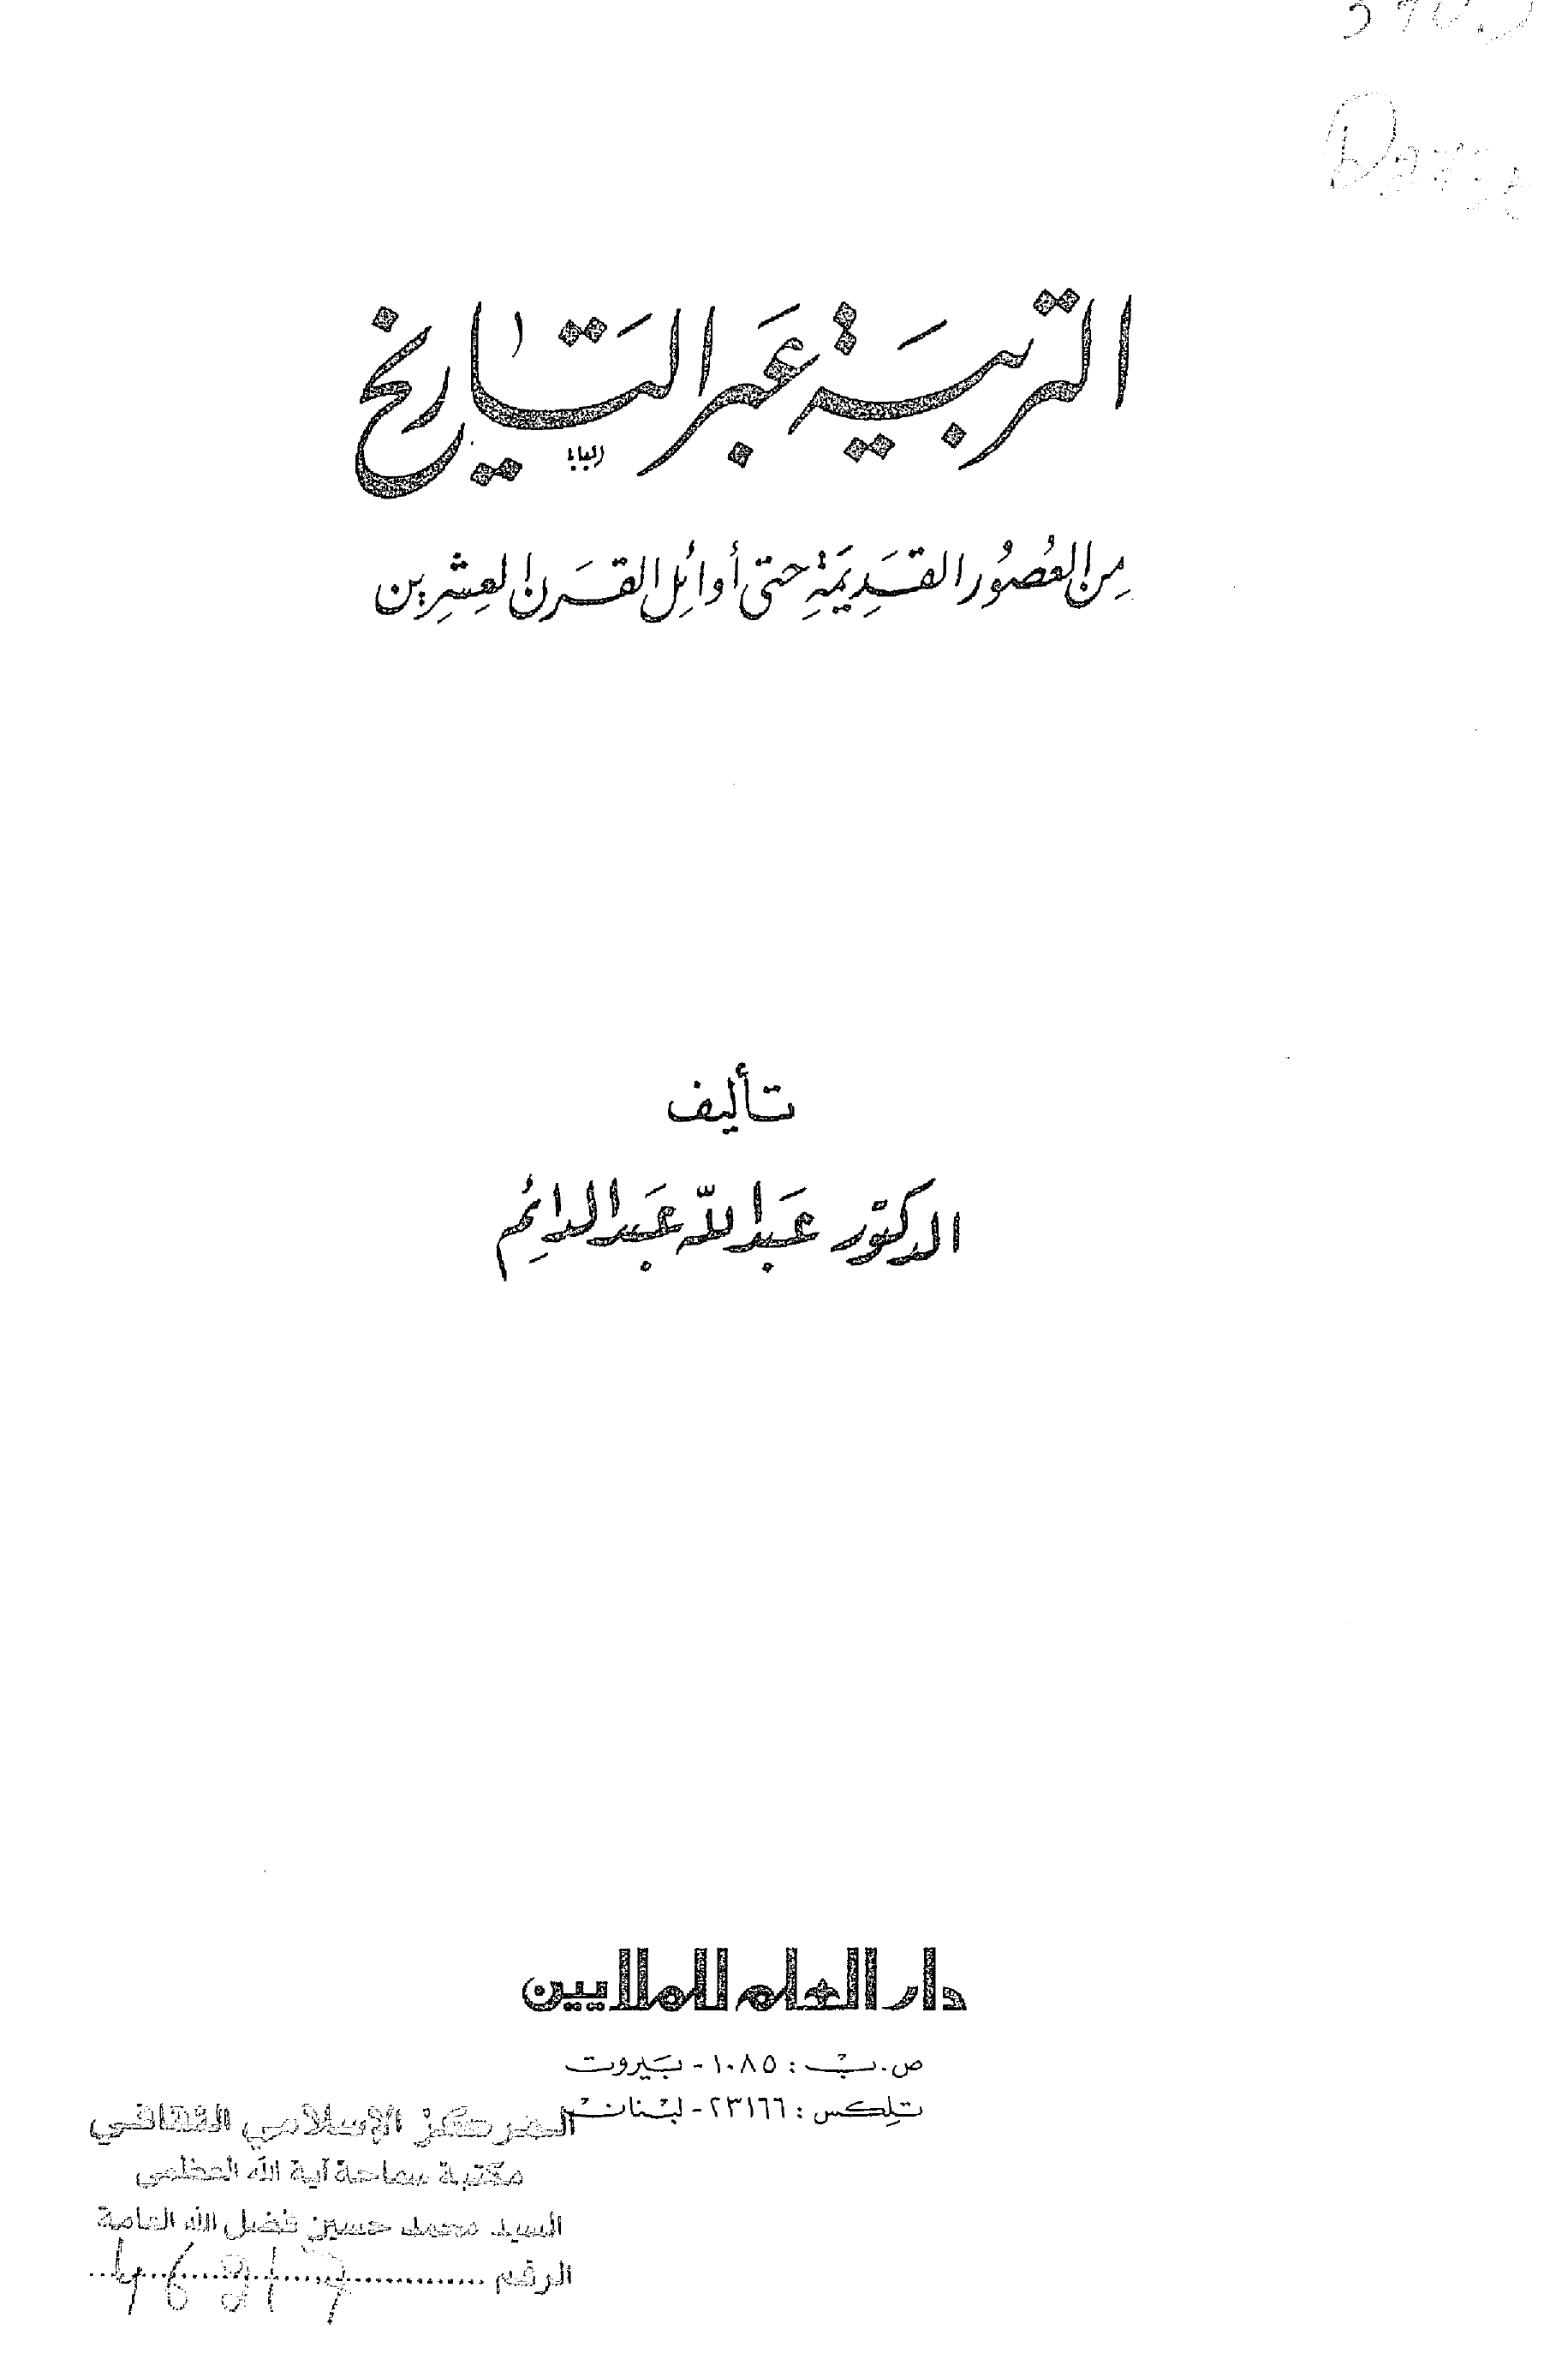 التربيَة عَبر التَاريخ
مِن العُصُور القَدِيمَةِ حتى أوائِل القَرن العِشرِين
تأليف
الدكتور عَبد اللّه عَبد الدائِم
دار العلم للملايين
ص.ب : ١٠٨٥ - بَيروت
تلِكس : ٢٣١٦٦ - لبْنان
المركز الإسلامي الثقافي
مكتبة سماحة آية الله العظمى
السيد محمد حسين فضل الله العامة
الرقم